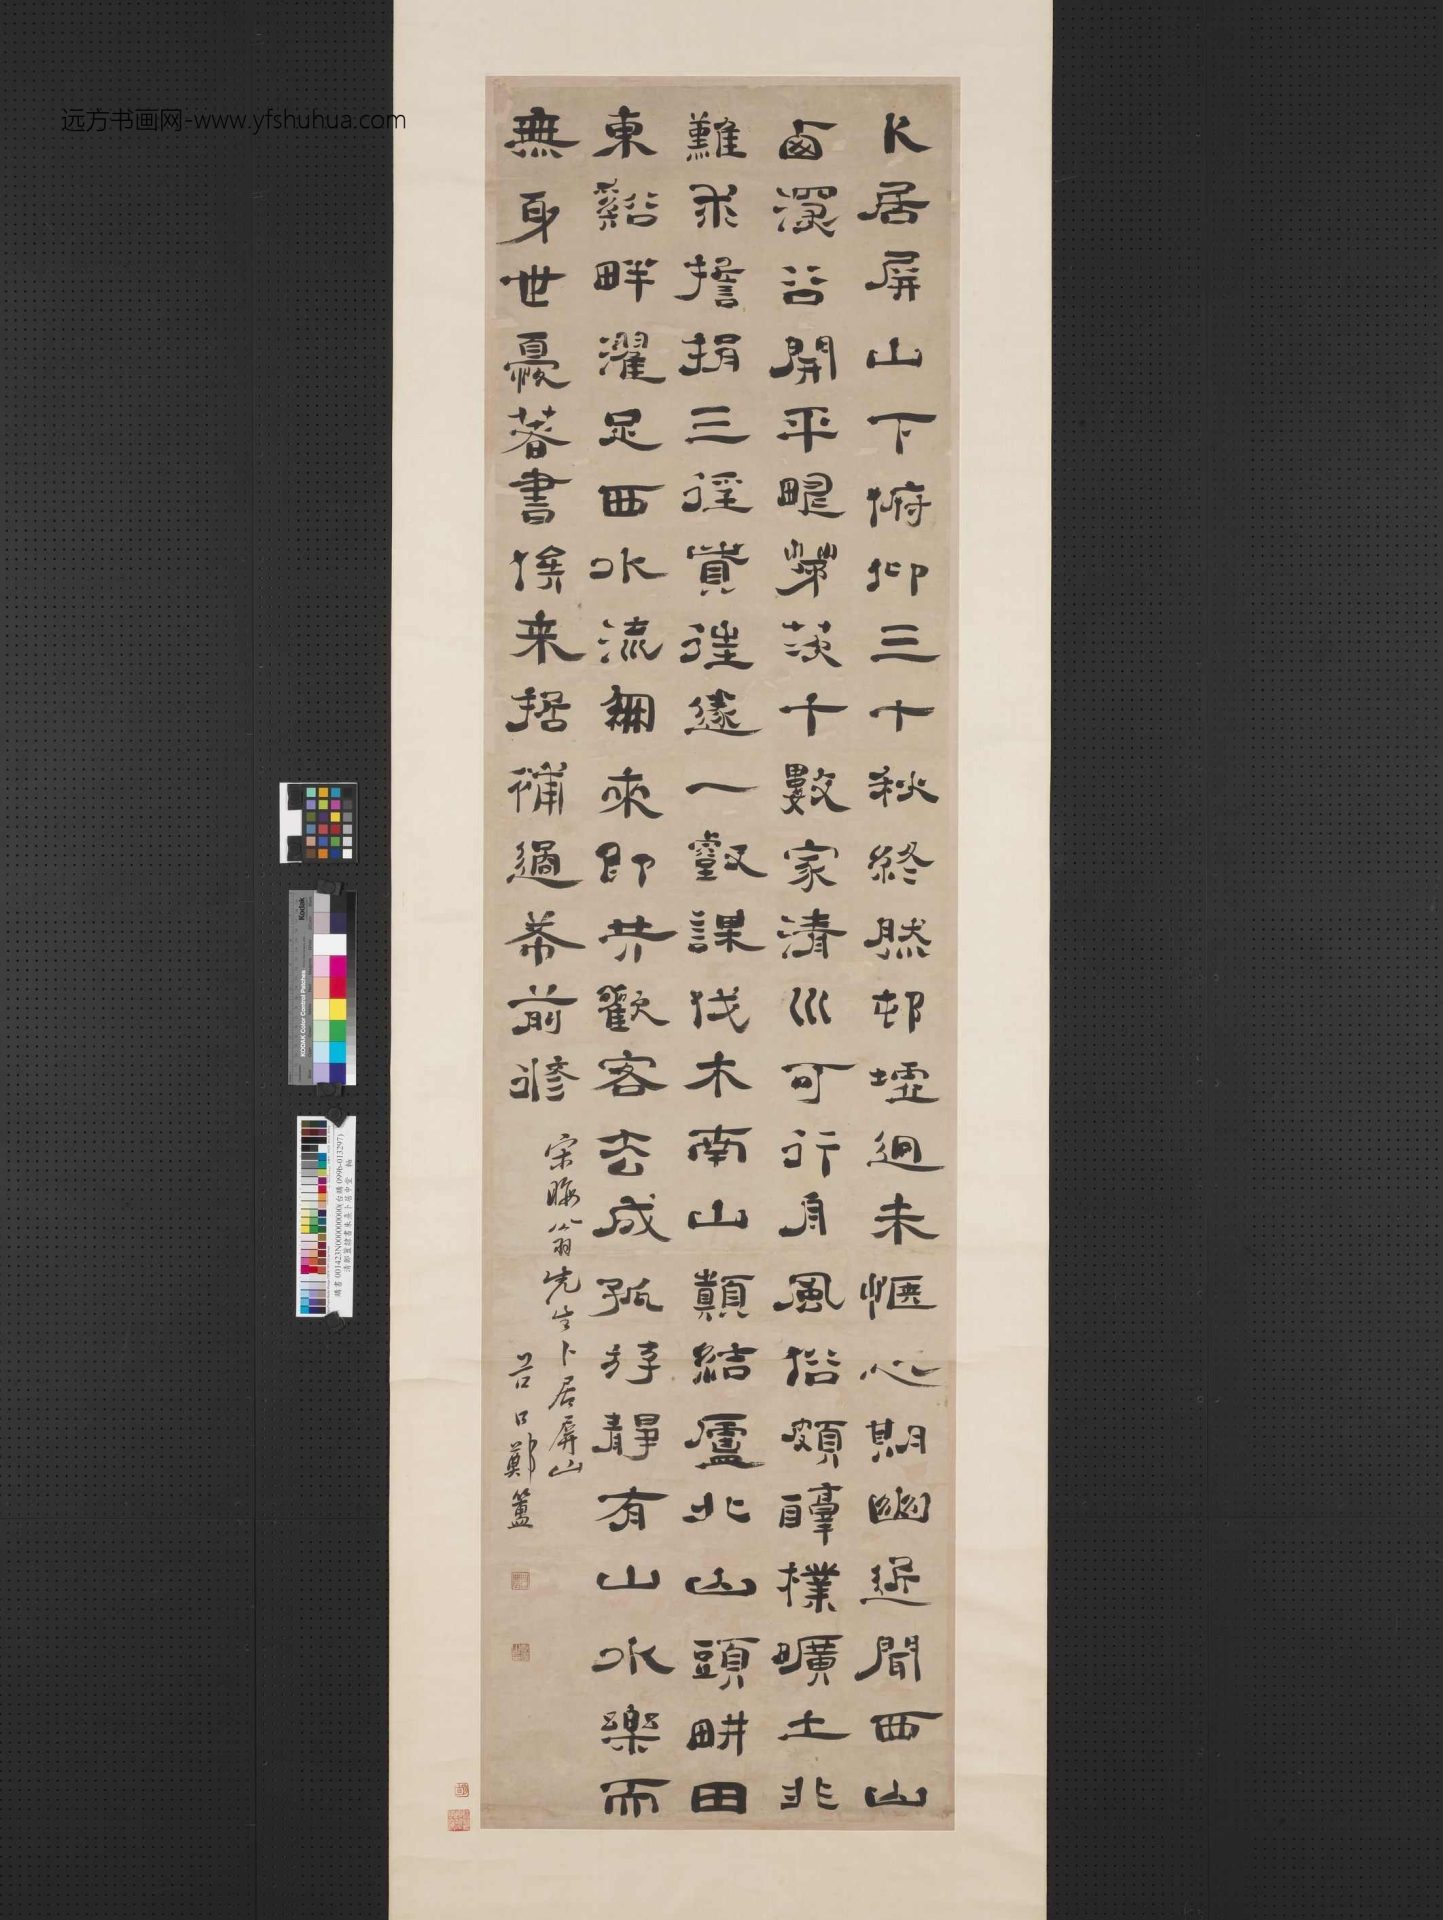 远方书画网-www.yfshuhua.com
卜居屏山下俯仰三十秋終然邨墟迥未愜心期幽近聞西山
卥深谷開平疇茅茨十數家清川可行舟風俗頗醇樸曠土非
難求捐三徑資往遂一壑謀伐木南山顛結廬北山頭畊田
東谿畔濯足西水流朋來即共歡客去成孤游靜有山水樂而
無身世憂著書俟来哲補過希前修
宋晦翁先生卜居屏山
谷口鄭簠
Kodak
KODAK Color Control Patches
清鄭簠隸書朱熹卜居中堂 軸